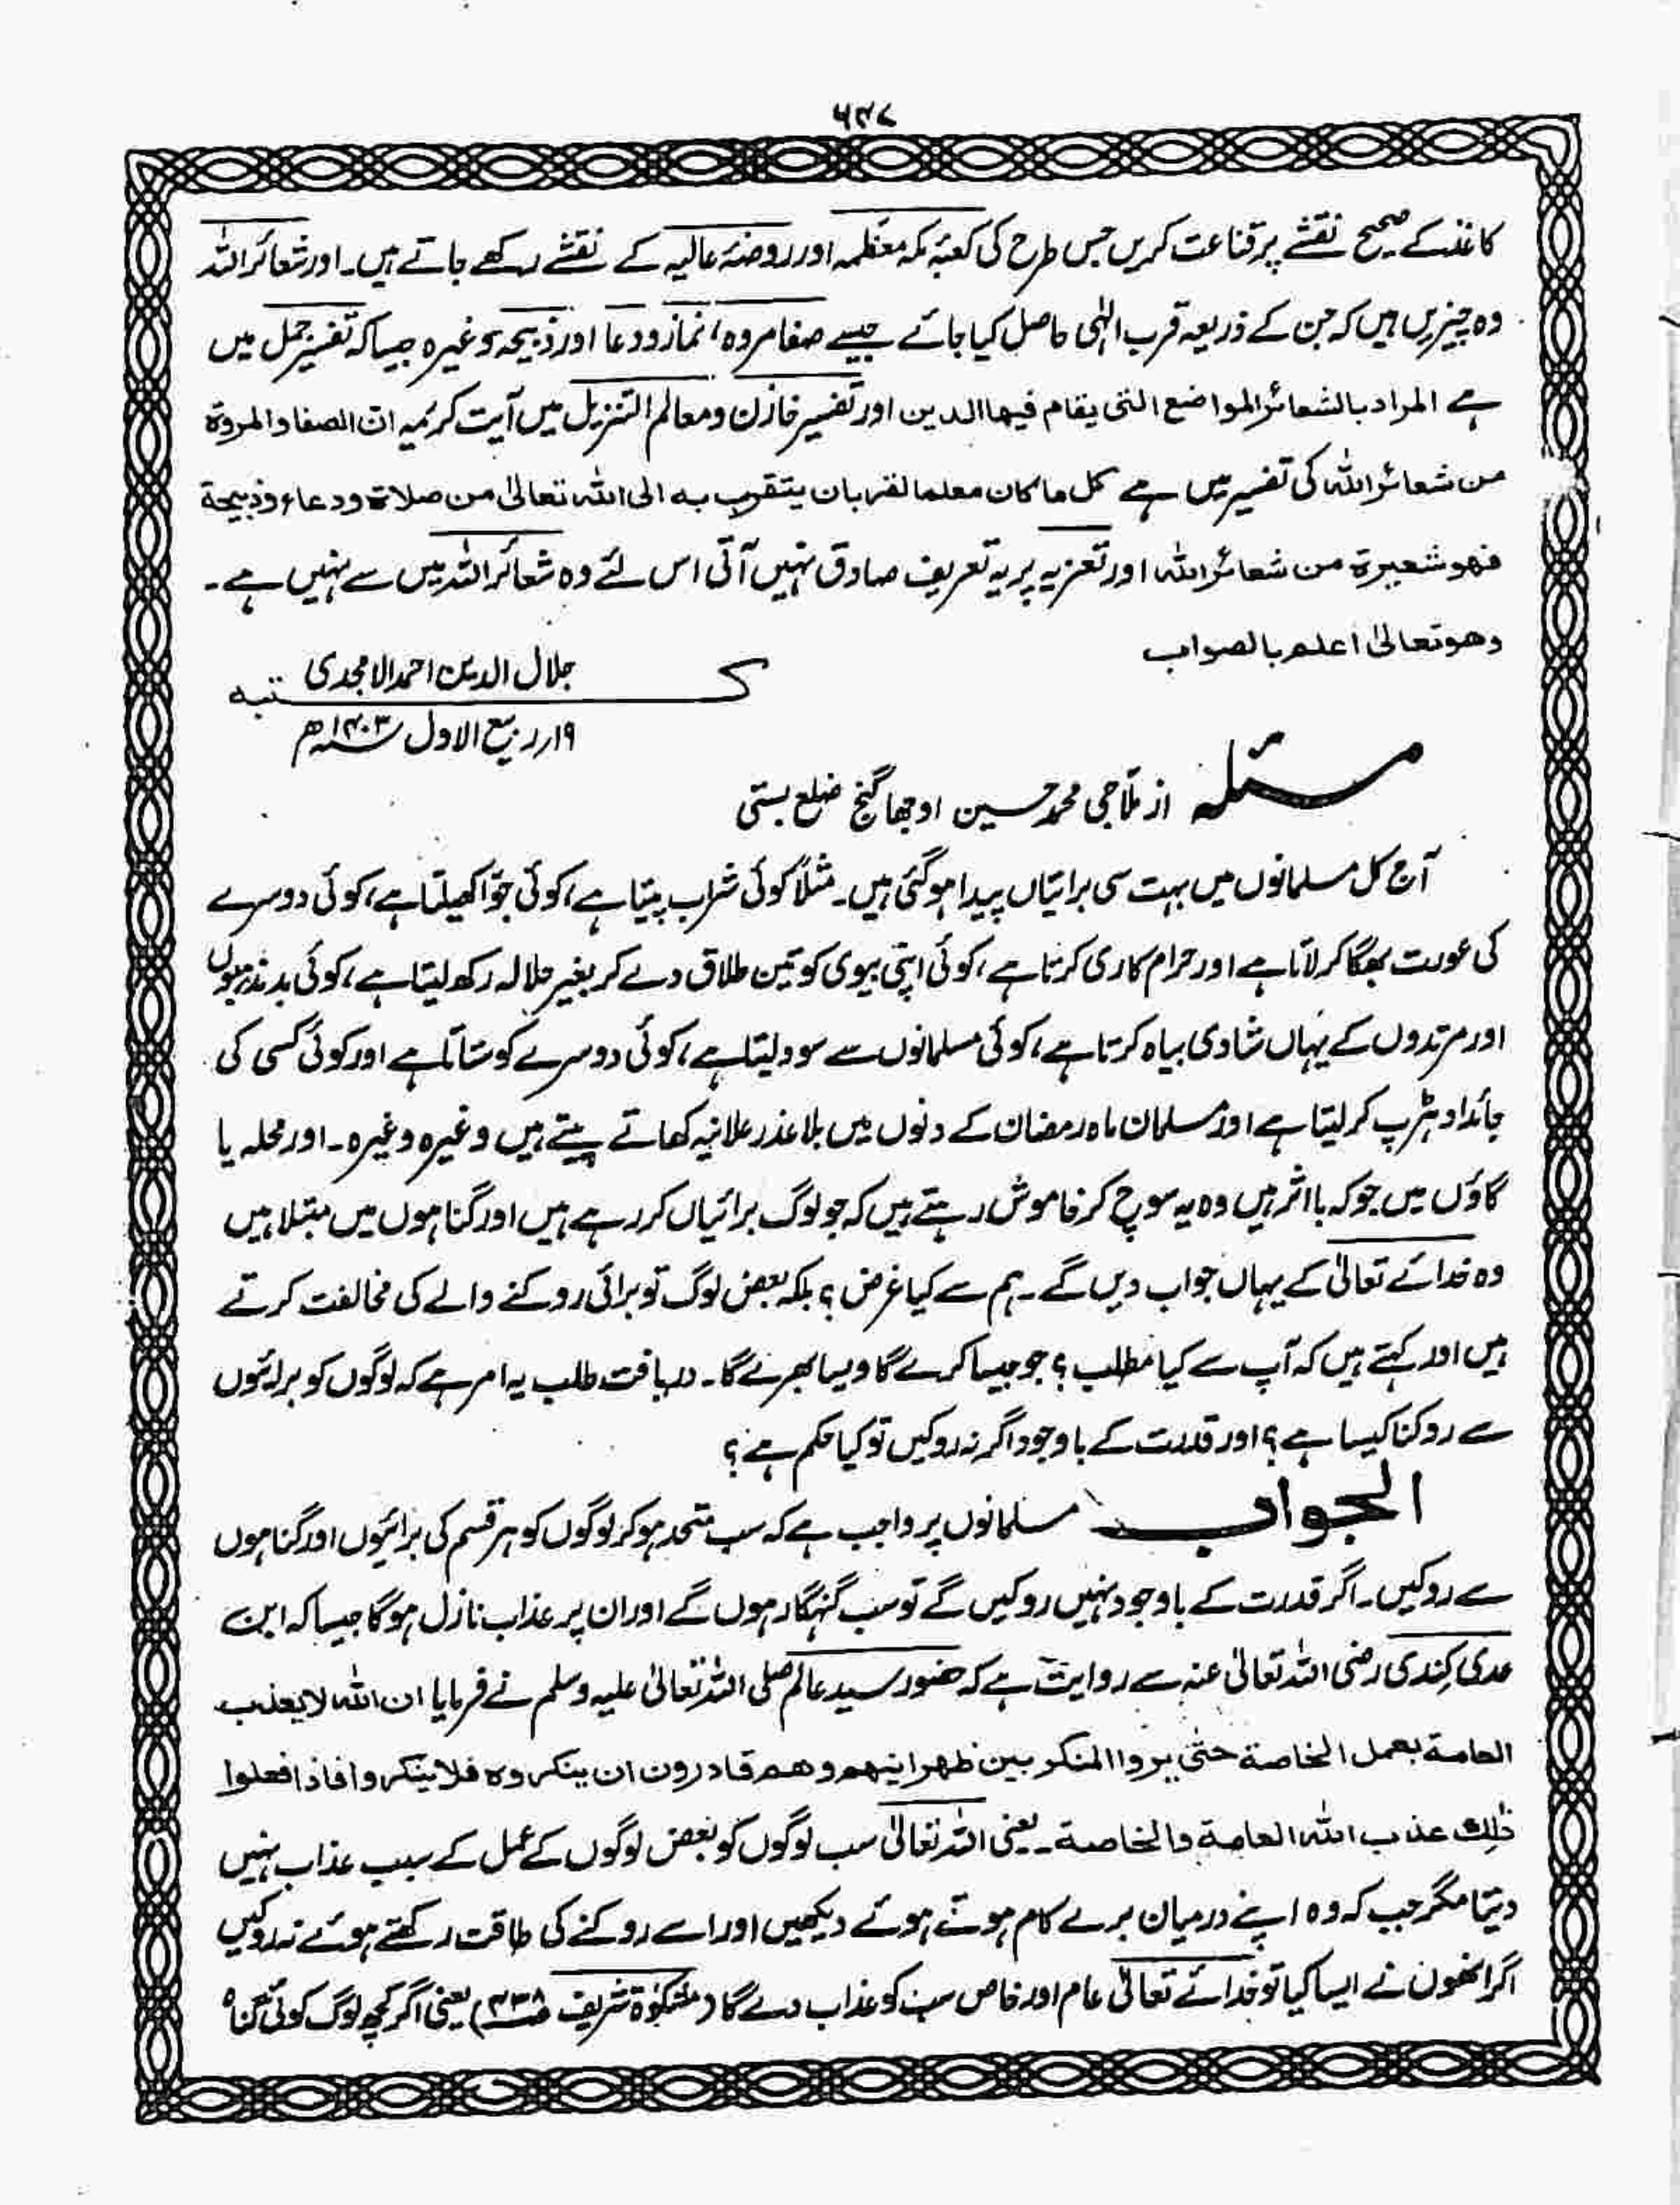 ۶۴۷
کاغذ کے صحیح نقشے پر قناعت کریں جس طرح کی کعبۂ مکہ معظمہ اور روضۂ عالیہ کے نقشے رکھے جاتے ہیں۔ اور شعائر اللہ
وہ چیزیں ہیں کہ جن کے ذریعہ قرب الٰہی حاصل کیا جائے جیسے صفا مروہ، نماز و دعا اور ذبیحہ وغیرہ جیسا کہ تفسیر جمل میں
ہے المراد بالشعائر المواضع التی یقام فیھا الدین اور تفسیر خازن و معالم التنزیل میں آیت کریمہ ان الصفا والمروۃ
من شعائر اللہ کی تفسیر میں ہے کل ما کان معلما لقربان یتقرب بہ الی اللہ تعالیٰ من صلاۃ ودعاء وذبیحۃ
فھو شعیرۃ من شعائر اللہ اور تعزیہ پر یہ تعریف صادق نہیں آتی اس لئے وہ شعائر اللہ میں سے نہیں ہے۔
وھو تعالیٰ اعلم بالصواب
کتبہ جلال الدین احمد الامجدی
۱۹؍ ربیع الاول ۱۴۰۳ھ
مسئلہ از ملا جی محمد حسین اوجھا گنج ضلع بستی
آج کل مسلمانوں میں بہت سی برائیاں پیدا ہوگئی ہیں۔ مثلاً کوئی شراب پیتا ہے، کوئی جوا کھیلتا ہے، کوئی دوسرے
کی عورت بھگا کر لاتا ہے اور حرام کاری کرتا ہے، کوئی اپنی بیوی کو تین طلاق دے کر بغیر حلالہ رکھ لیتا ہے، کوئی بدمذہبوں
اور مرتدوں کے یہاں شادی بیاہ کرتا ہے، کوئی مسلمانوں سے سود لیتا ہے، کوئی دوسرے کو ستاتا ہے اور کوئی کسی کی
جائداد ہڑپ کرلیتا ہے اور مسلمان ماہ رمضان کے دنوں میں بلا عذر علانیہ کھاتے پیتے ہیں وغیرہ وغیرہ۔ اور محلہ یا
گاؤں میں جو کہ بااثر ہیں وہ یہ سوچ کر خاموش رہتے ہیں کہ جو لوگ برائیاں کر رہے ہیں اور گناہوں میں مبتلا ہیں
وہ خدائے تعالیٰ کے یہاں جواب دیں گے۔ ہم سے کیا غرض؟ بلکہ بعض لوگ تو برائی روکنے والے کی مخالفت کرتے
ہیں اور کہتے ہیں کہ آپ سے کیا مطلب؟ جو جیسا کرے گا ویسا بھرے گا۔ دریافت طلب یہ امر ہے کہ لوگوں کو برائیوں
سے روکنا کیسا ہے؟ اور قدرت کے باوجود اگر نہ روکیں تو کیا حکم ہے؟
الجواب مسلمانوں پر واجب ہے کہ سب متحد ہوکر لوگوں کو ہر قسم کی برائیوں اور گناہوں
سے روکیں۔ اگر قدرت کے باوجود نہیں روکیں گے تو سب گنہگار ہوں گے اور ان پر عذاب نازل ہوگا جیسا کہ ابن
عدی کِندی رضی اللہ تعالیٰ عنہ سے روایت ہے کہ حضور سید عالم صلی اللہ تعالیٰ علیہ وسلم نے فرمایا ان اللہ لا یعذب
العامۃ بعمل الخاصۃ حتیٰ یروا المنکر بین ظھرانیھم وھم قادرون ان ینکروہ فلا ینکروا فاذا فعلوا
ذٰلک عذب اللہ العامۃ والخاصۃ۔ یعنی اللہ تعالیٰ سب لوگوں کو بعض لوگوں کے عمل کے سبب عذاب نہیں
دیتا مگر جب کہ وہ اپنے درمیان برے کام ہوتے ہوئے دیکھیں اور اسے روکنے کی طاقت رکھتے ہوئے نہ روکیں
اگر انھوں نے ایسا کیا تو خدائے تعالیٰ عام اور خاص سب کو عذاب دے گا (مشکوٰۃ شریف ص۴۳۸) یعنی اگر کچھ لوگ کوئی گناہ